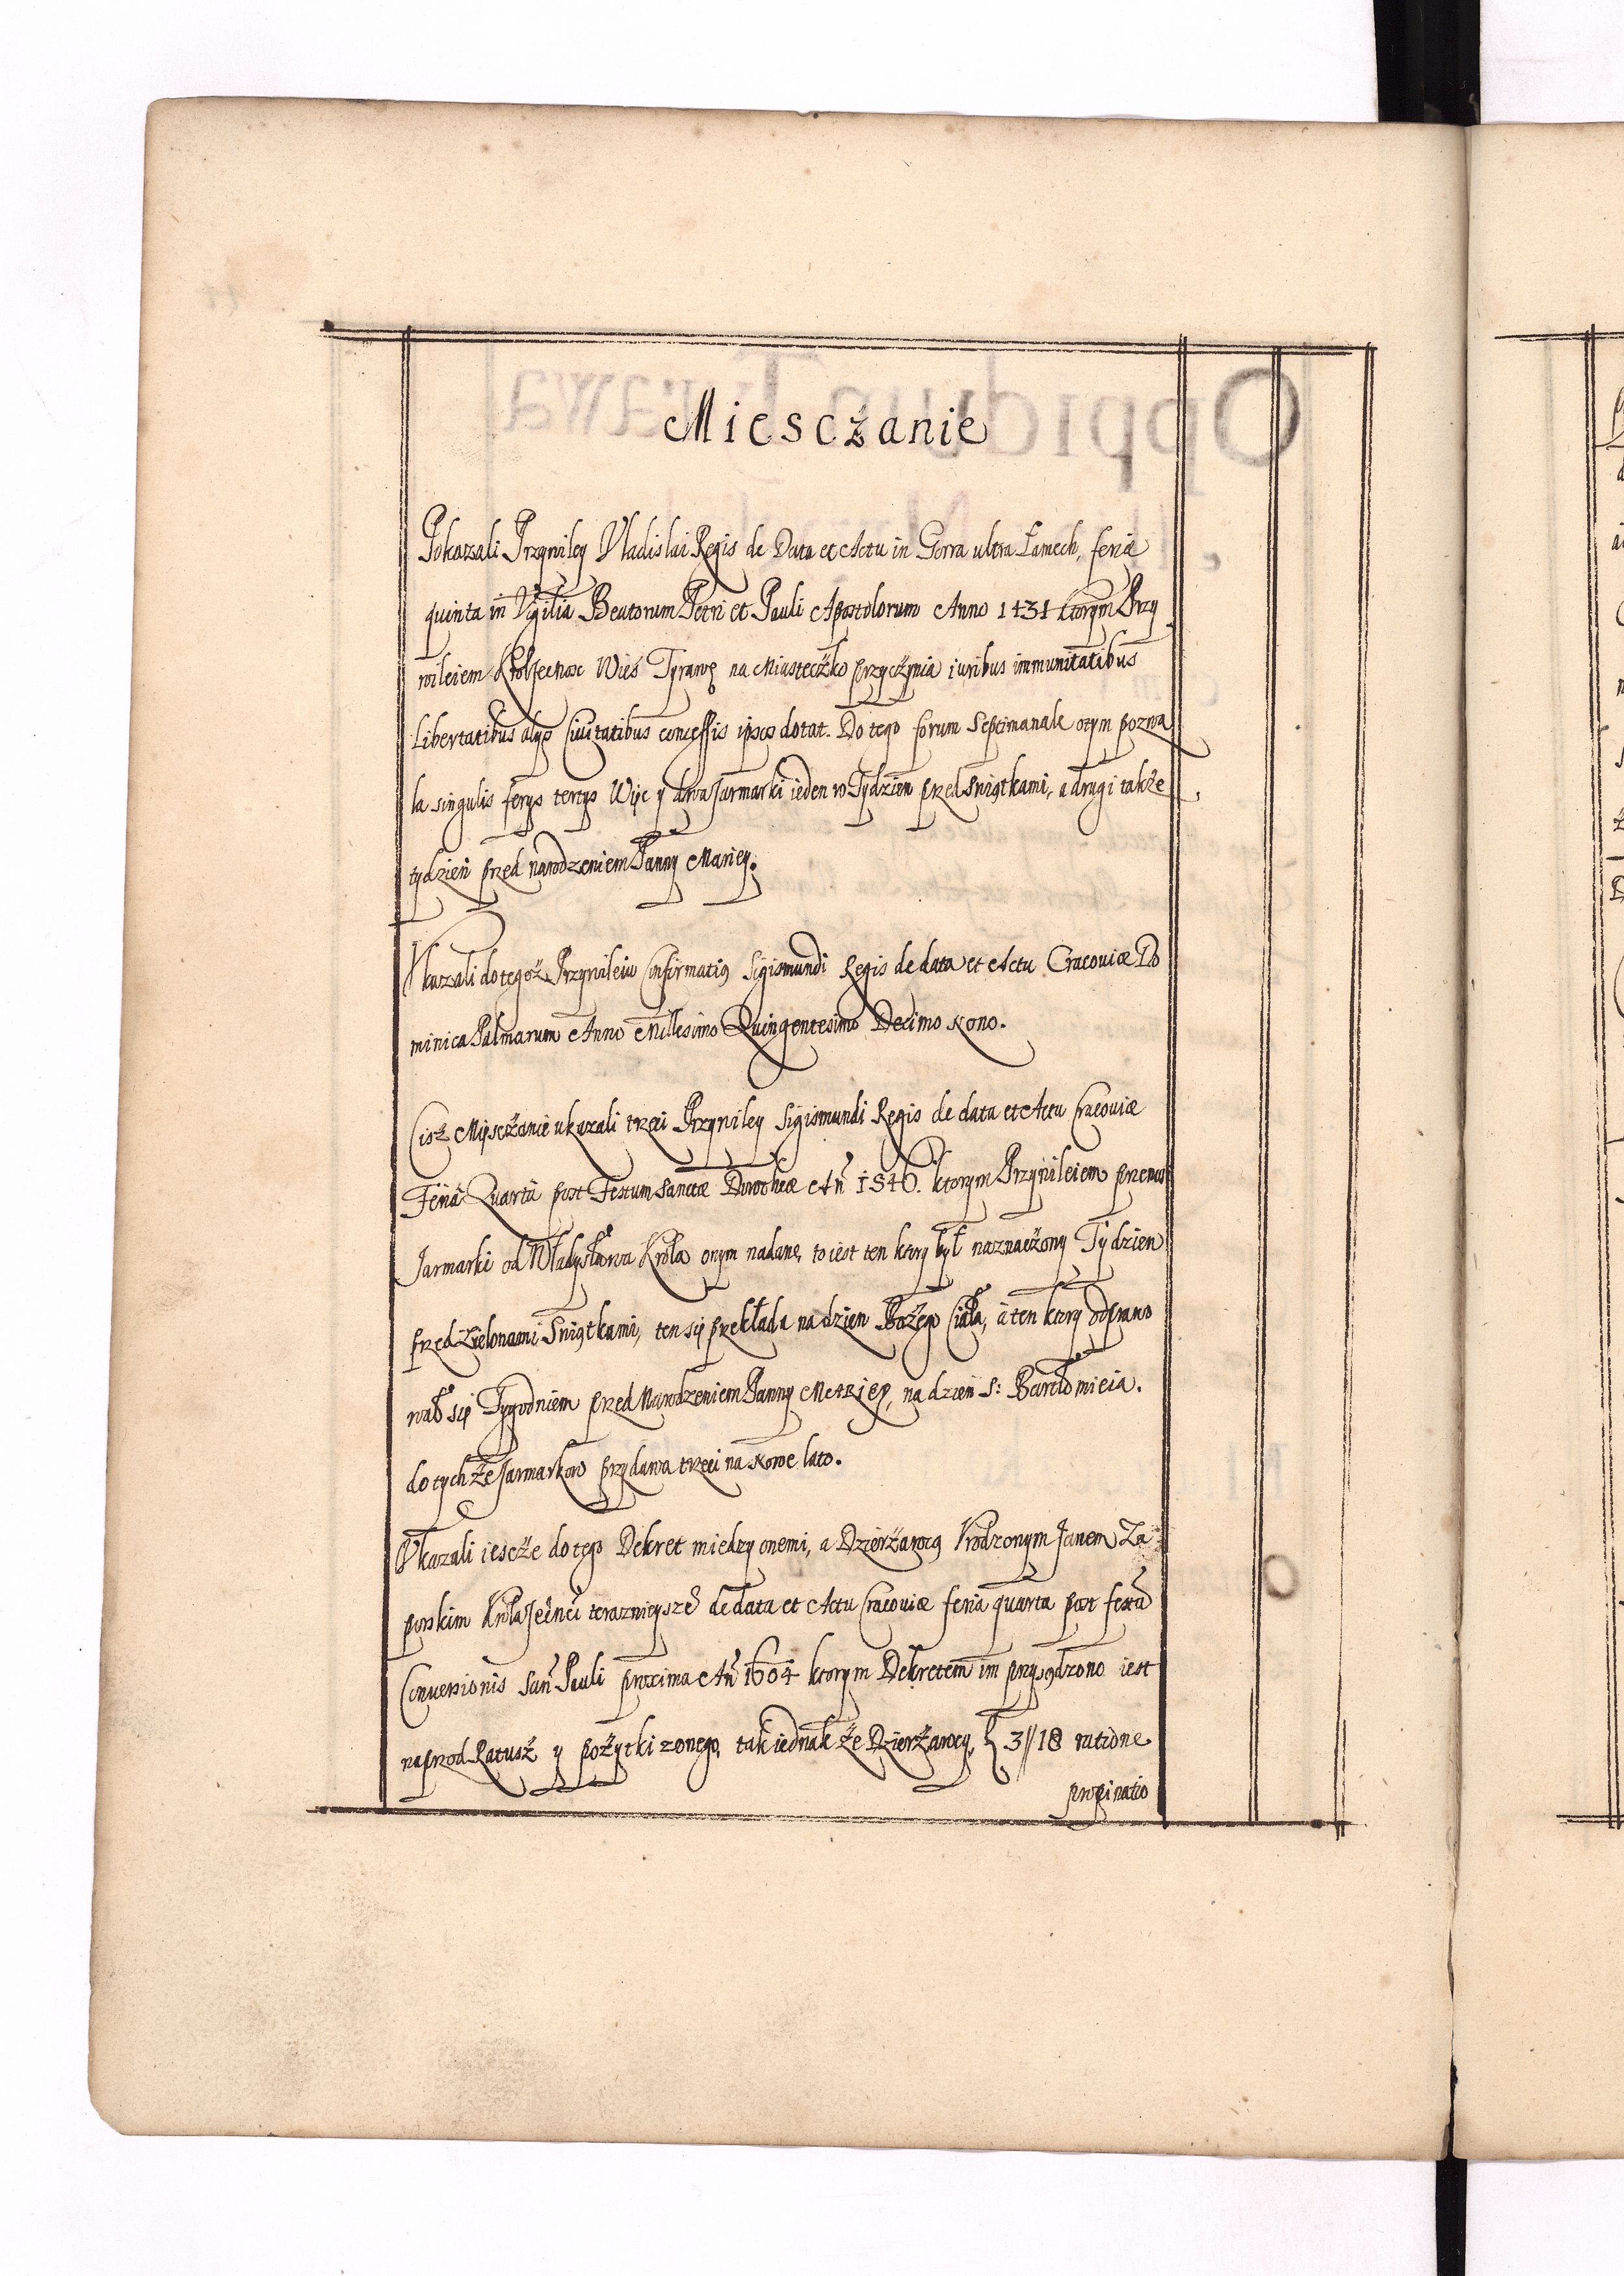 Miescżanie
Pokazali Przywiley Vladislai Regis de Data et Actu in Gorra ultra Lamech, feria
quinta in Vigilia Beatorum Petri et Pauli Apostolorum Anno 1431 ktorym Przy
wileiem Wieś Tyrawę na Miastecżko przycżynia iuribus immunitatibus
Libertatibus alijs Civitatibus concessis ipsos dotat. Do tego forum Septimanale otym pozwa
la singulis ferijs tertijs Więc y dwa Jarmarki ieden w Tydzien pred Swiątkami, a drugi także
tydzień pred narodzeniem Panny Mariey.
Vkazali do tegoż Przywileiu Confirmatią Sigismundi Regis de data et Actu Cracouiæ Do
minica Palmarum Anno Millesimo Quingentesimo Decimo Nono.
Cisż Miescżanie ukazali trzeci Przywiley Sigismundi Regis de data et Actu Cracouiæ
Feria Quarta post Festum Sanctæ Dorotheæ Añ 1546. ktorym Przywileiem prenosi
Jarmarki od Władysława Krola onym nadane, to iest ten ktory był naznacżony Tydzien
pred Zielonami Swiątkami, ten się prekłada na dzien Bożego Ciała, a ten ktory odprawo
wał się Tygodniem pred Narodzeniem Panny Mariey, na dzien S: Bartłomieia.
do tych że Jarmarkow przydawa trzeci na Nowe lato.
Vkazali iescże do tego Dekret miedzy onemi, a Dzierżawcą Vrodzonym Janem Za
porskim teraznieysze de data et Actu Cracouiæ feria quarta post festa
Conuersionis San Pauli proxima Añ 1604 ktorym Dekretem im przysądzono iest
naprzod Ratusż y pożytki z onego, tak iednak że Dzierżawcy, 3//18 ratione
propinatio